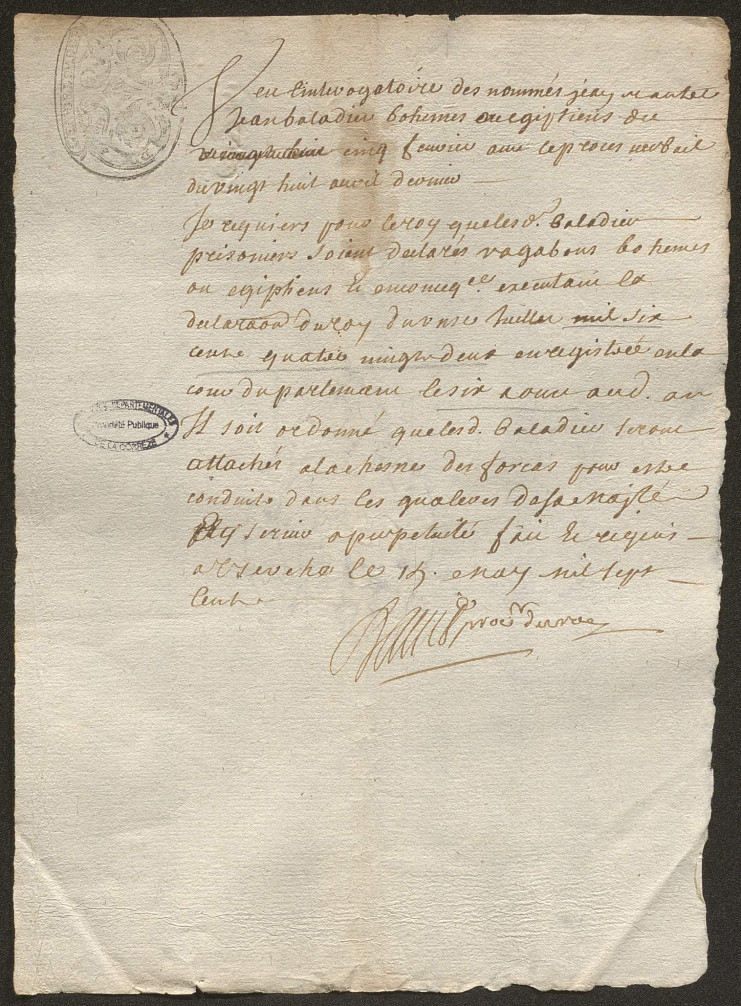 Veu l'interogatoire des nommés jean
Jean baladier bohemes ou egiptiens du
vingt huit cinq fevrier avec le proces verbail
du vingt huit avril dernier
Je requiers pour le roy que lesd. baladier
prisoniers soient declarés vagabons bohemes
ou egiptiens et en conseqce executant la
declaraon du roy du onse Juillet mil six
cents quatre vingts deux enregistrée en la
cour du parlement le six aout aud. an
Il soit ordonné que lesd. baladier seront
attachés a la chesne des forcas pour estre
conduits dans les galeres de sa majesté
servir a perpetuité fait et requis
a Userche le 14. may mil sept
cents
procr du roy
DEPARTEMENTALES
Propriété Publique
DE LA CORREZE